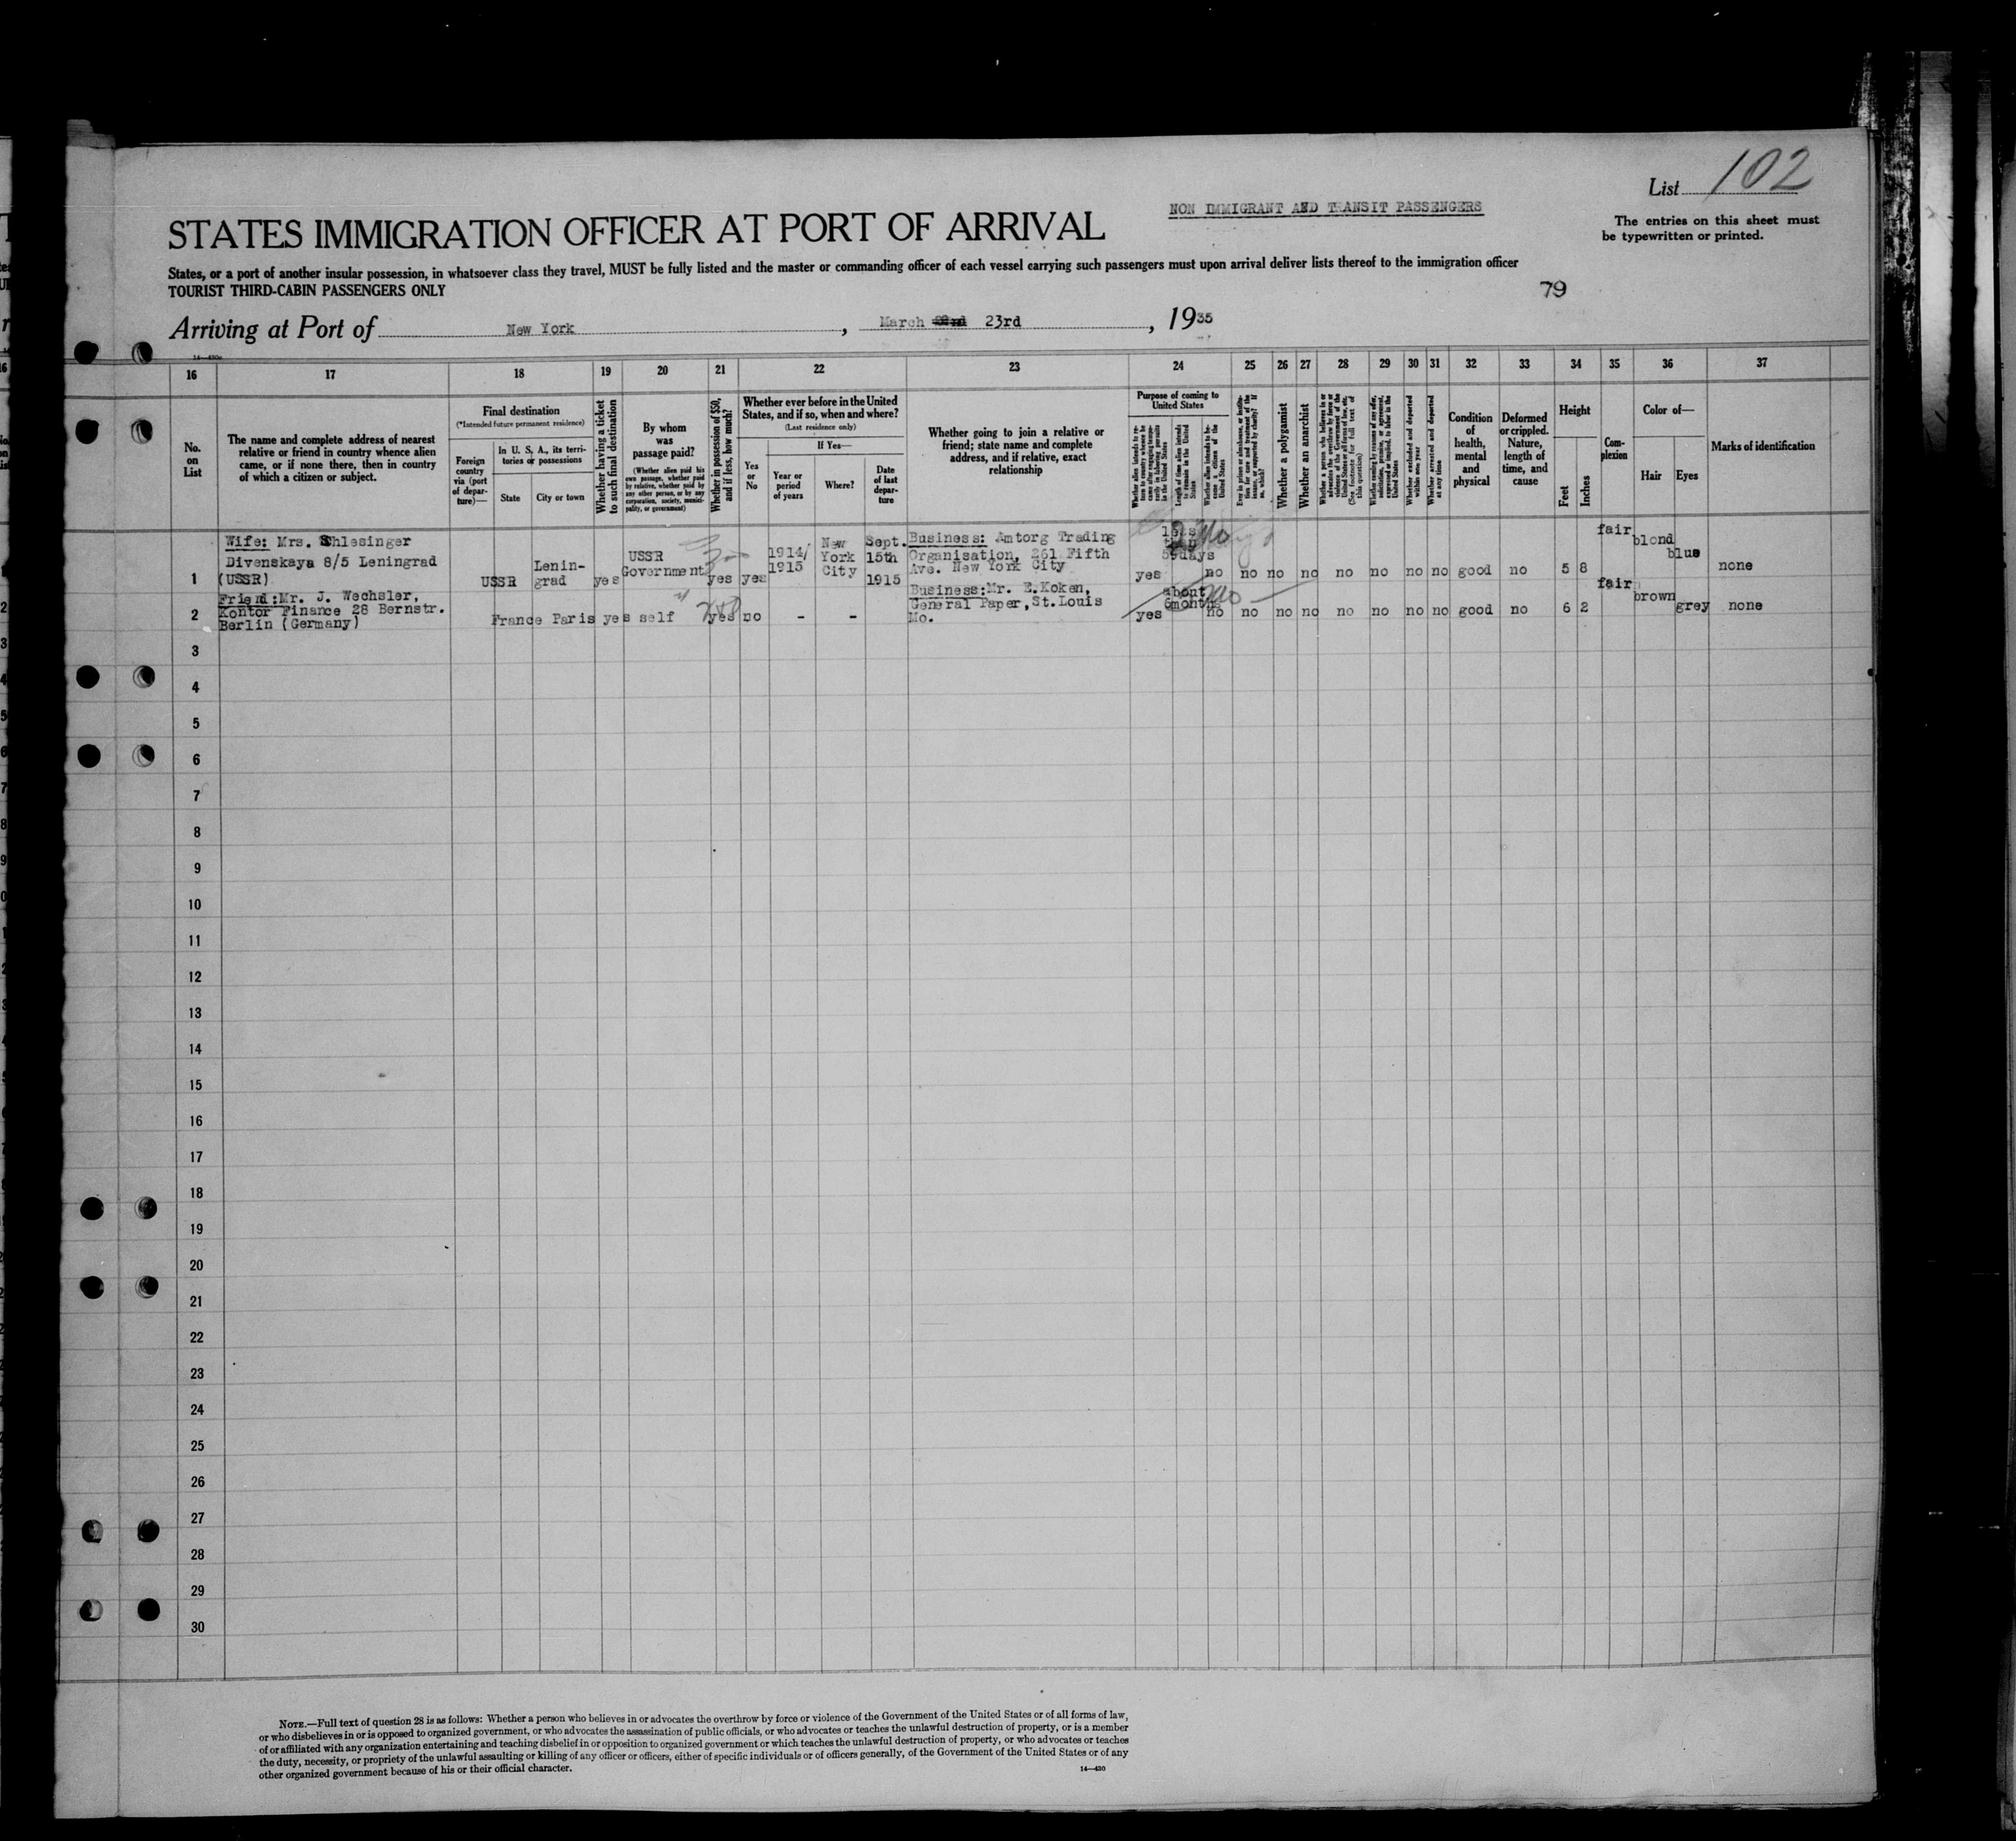 List 102
NON IMMIGRANT AND TRANSIT PASSENGERS
STATES IMMIGRATION OFFICER AT PORT OF ARRIVAL
The entries on this sheet must
be typewritten or printed.
States, or a port of another insular possession, in whatsoever class they travel, MUST be fully listed and the master or commanding officer of each vessel carrying such passengers must upon arrival deliver lists thereof to the immigration officer
TOURIST THIRD-CABIN PASSENGERS ONLY
79
Arriving at Port of New York, March 23rd, 1935
14—430
16 17 18 19 20 21 22 23 24 25 26 27 28 29 30 31 32 33 34 35 36 37
No.
on
List
The name and complete address of nearest
relative or friend in country whence alien
came, or if none there, then in country
of which a citizen or subject.
Final destination
(*Intended future permanent residence)
Foreign
country
via (port
of depar-
ture)—
In U. S. A., its terri-
tories or possessions
State
City or town
Whether having a ticket
to such final destination
By whom
was
passage paid?
(Whether alien paid his
own passage, whether paid
by relative, whether paid by
any other person, or by any
corporation, society, munici-
pality, or government)
Whether in possession of $50,
and if less, how much?
Whether ever before in the United
States, and if so, when and where?
(Last residence only)
Yes
or
No
If Yes—
Year or
period
of years
Where?
Date
of last
depar-
ture
Whether going to join a relative or
friend; state name and complete
address, and if relative, exact
relationship
Purpose of coming to
United States
Whether alien intends to re-
turn to country whence he
came after engaging tempo-
rarily in laboring pursuits
in the United States
Length of time alien intends
to remain in the United
States
Whether alien intends to be-
come a citizen of the
United States
Ever in prison or almshouse, or institu-
tion for care and treatment of the
insane, or supported by charity? If
so, which?
Whether a polygamist
Whether an anarchist
Whether a person who believes in or
advocates the overthrow by force or
violence of the Government of the
United States or all forms of law, etc.
(See footnote for full text of
this question)
Whether coming by reason of any offer,
solicitation, promise, or agreement,
expressed or implied, to labor in the
United States
Whether excluded and deported
within one year
Whether arrested and deported
at any time
Condition
of
health,
mental
and
physical
Deformed
or crippled.
Nature,
length of
time, and
cause
Height
Feet
Inches
Com-
plexion
Color of—
Hair
Eyes
Marks of identification
1
Wife: Mrs. Shlesinger
Divenskaya 8/5 Leningrad
(USSR)
USSR
Lenin-
grad
yes
USSR
Government
yes
yes
1914/
1915
New
York
City
Sept.
15th
1915
Business: Amtorg Trading
Organisation, 261 Fifth
Ave. New York City
yes
less
than
days
no
no no no no no no no good no 5 8 fair blond blue none
2
Friend: Mr. J. Wechsler,
Kontor Finance 28 Bernstr.
Berlin (Germany)
France Paris yes self yes no - -
Business: Mr. E. Koken,
General Paper, St. Louis
Mo.
yes
about
6months
no
no no no no no no no good no 6 2 fair brown grey none
3
4
5
6
7
8
9
10
11
12
13
14
15
16
17
18
19
20
21
22
23
24
25
26
27
28
29
30
NOTE.—Full text of question 28 is as follows: Whether a person who believes in or advocates the overthrow by force or violence of the Government of the United States or of all forms of law,
or who disbelieves in or is opposed to organized government, or who advocates the assassination of public officials, or who advocates or teaches the unlawful destruction of property, or is a member
of or affiliated with any organization entertaining and teaching disbelief in or opposition to organized government or which teaches the unlawful destruction of property, or who advocates or teaches
the duty, necessity, or propriety of the unlawful assaulting or killing of any officer or officers, either of specific individuals or of officers generally, of the Government of the United States or of any
other organized government because of his or their official character.
14—430